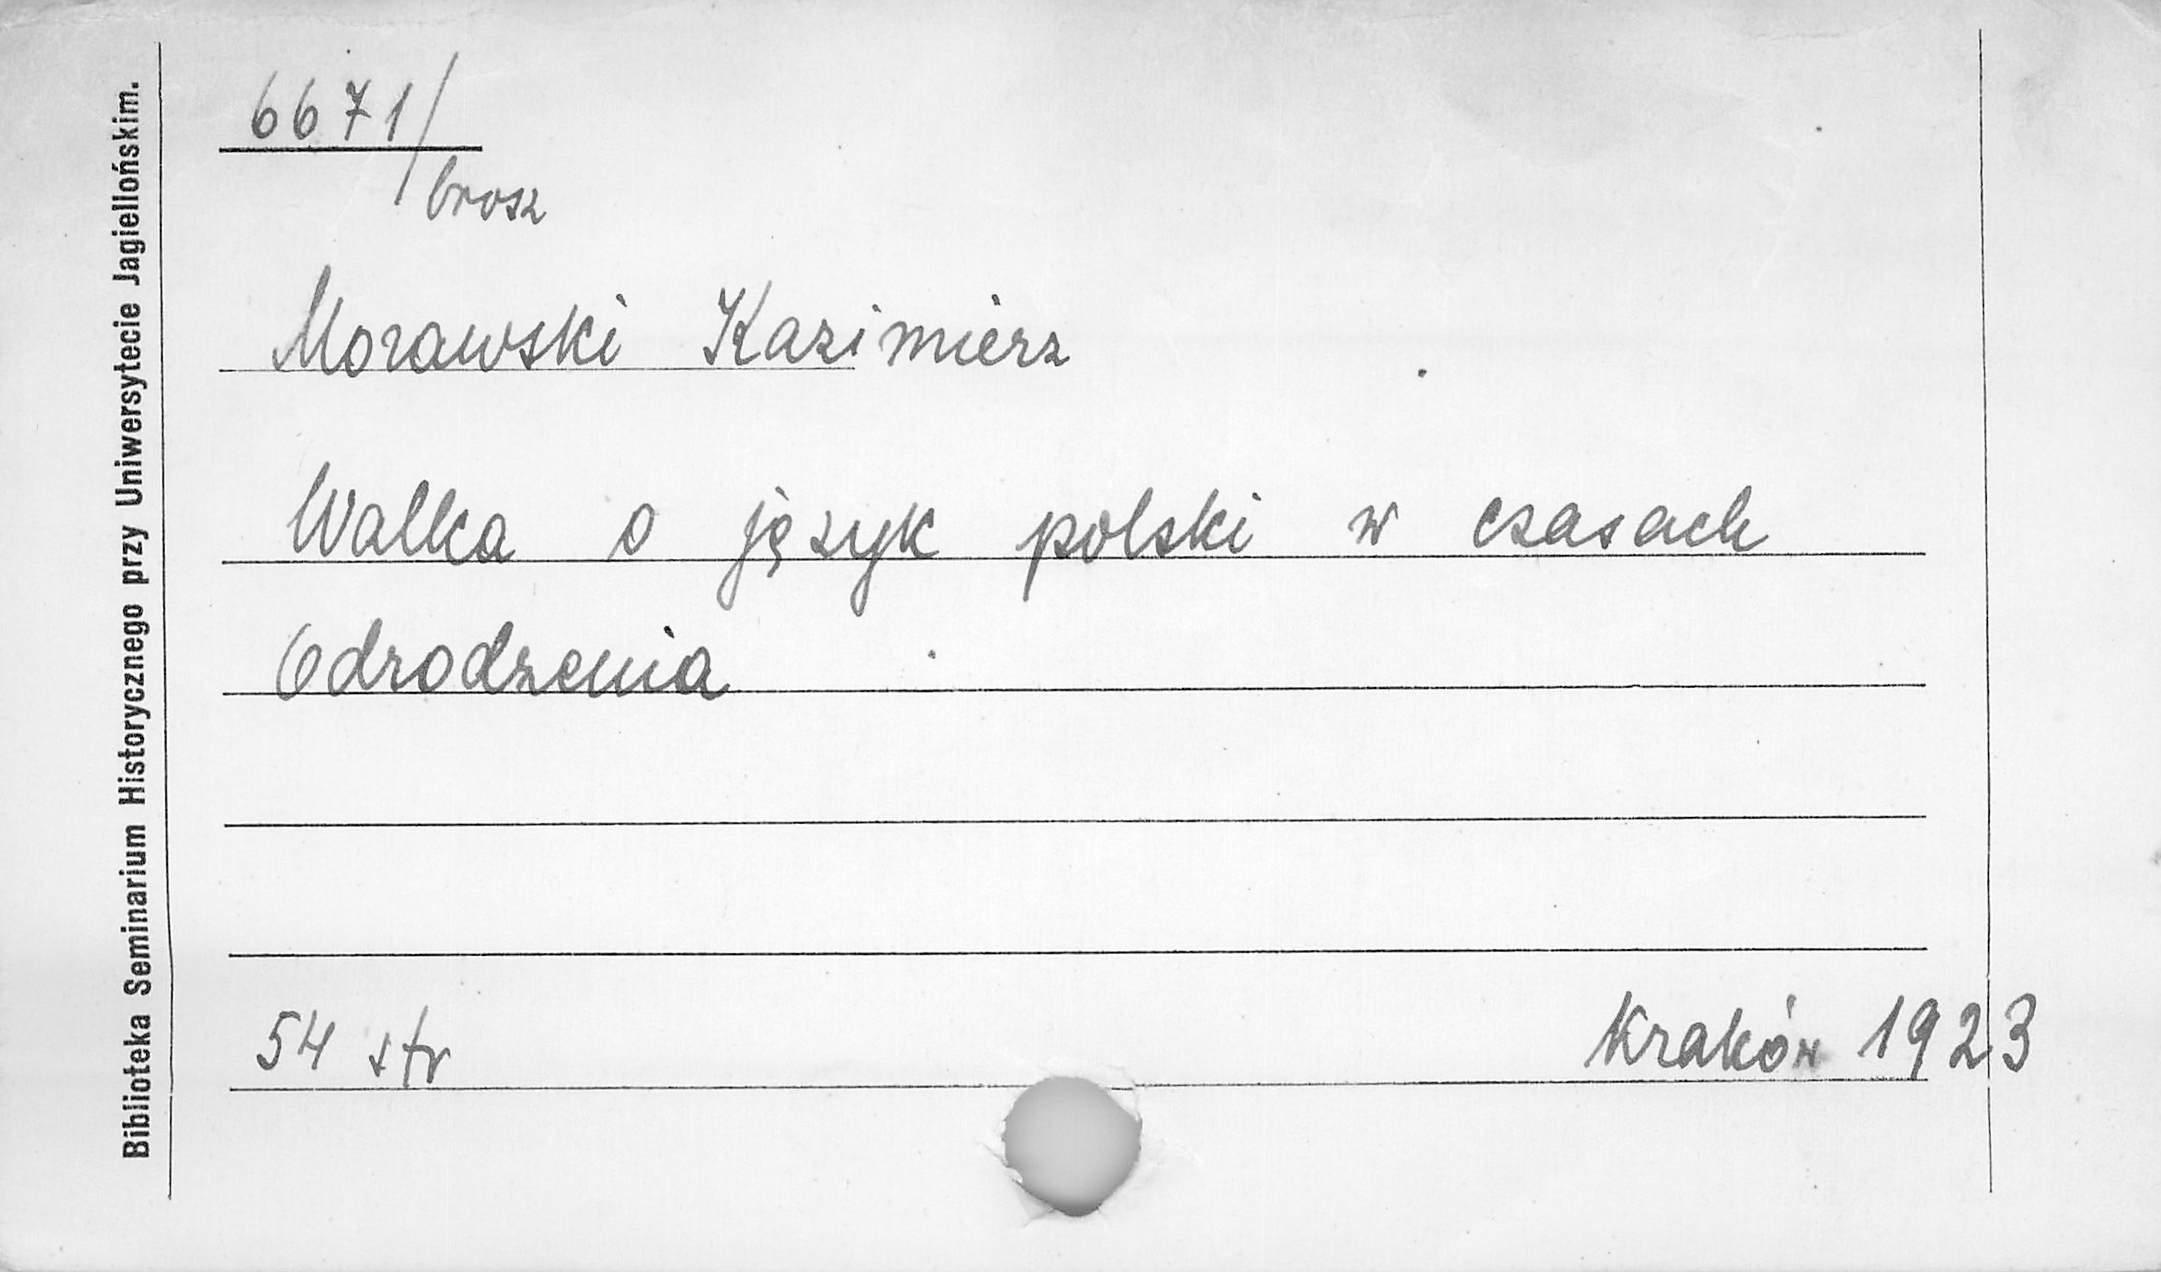 6671/
brosz
Morawski Kazimierz
Walka o język polski w czasach
Odrodzenia
54 str
Kraków 1923
Biblioteka Seminarium Historycznego przy Uniwersytecie Jagiellońskim.